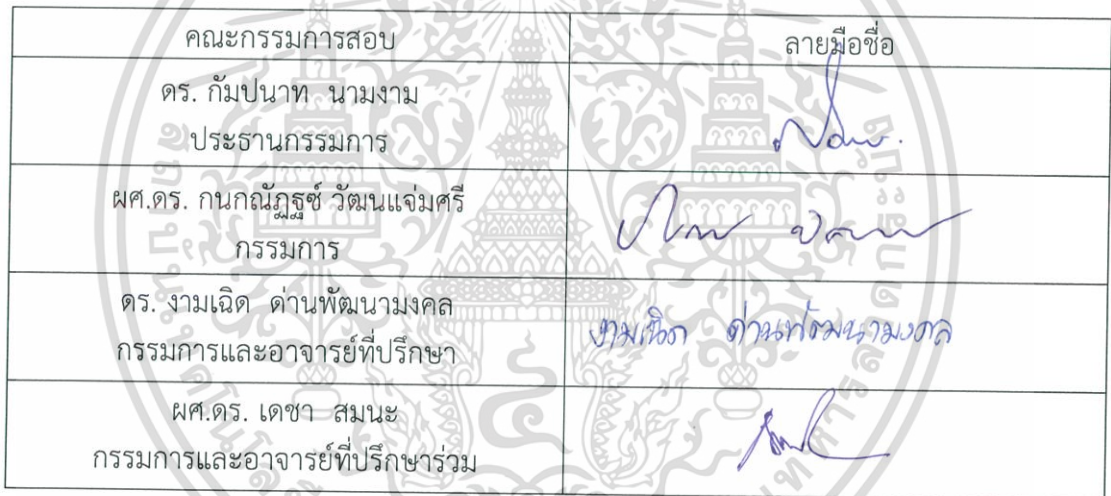 คณะกรรมการสอบ ลายมือชื่อ
ดร. กัมปนาท นามงาม
ประธานกรรมการ
ผศ.ดร. กนกณัฏฐซ์ วัฒนแจ่มศรี
กรรมการ
ดร. งามเฉิด ด่านพัฒนามงคล
กรรมการและอาจารย์ที่ปรึกษา
งามเฉิด ด่านพัฒนามงคล
ผศ.ดร. เดชา สมนะ
กรรมการและอาจารย์ที่ปรึกษาร่วม